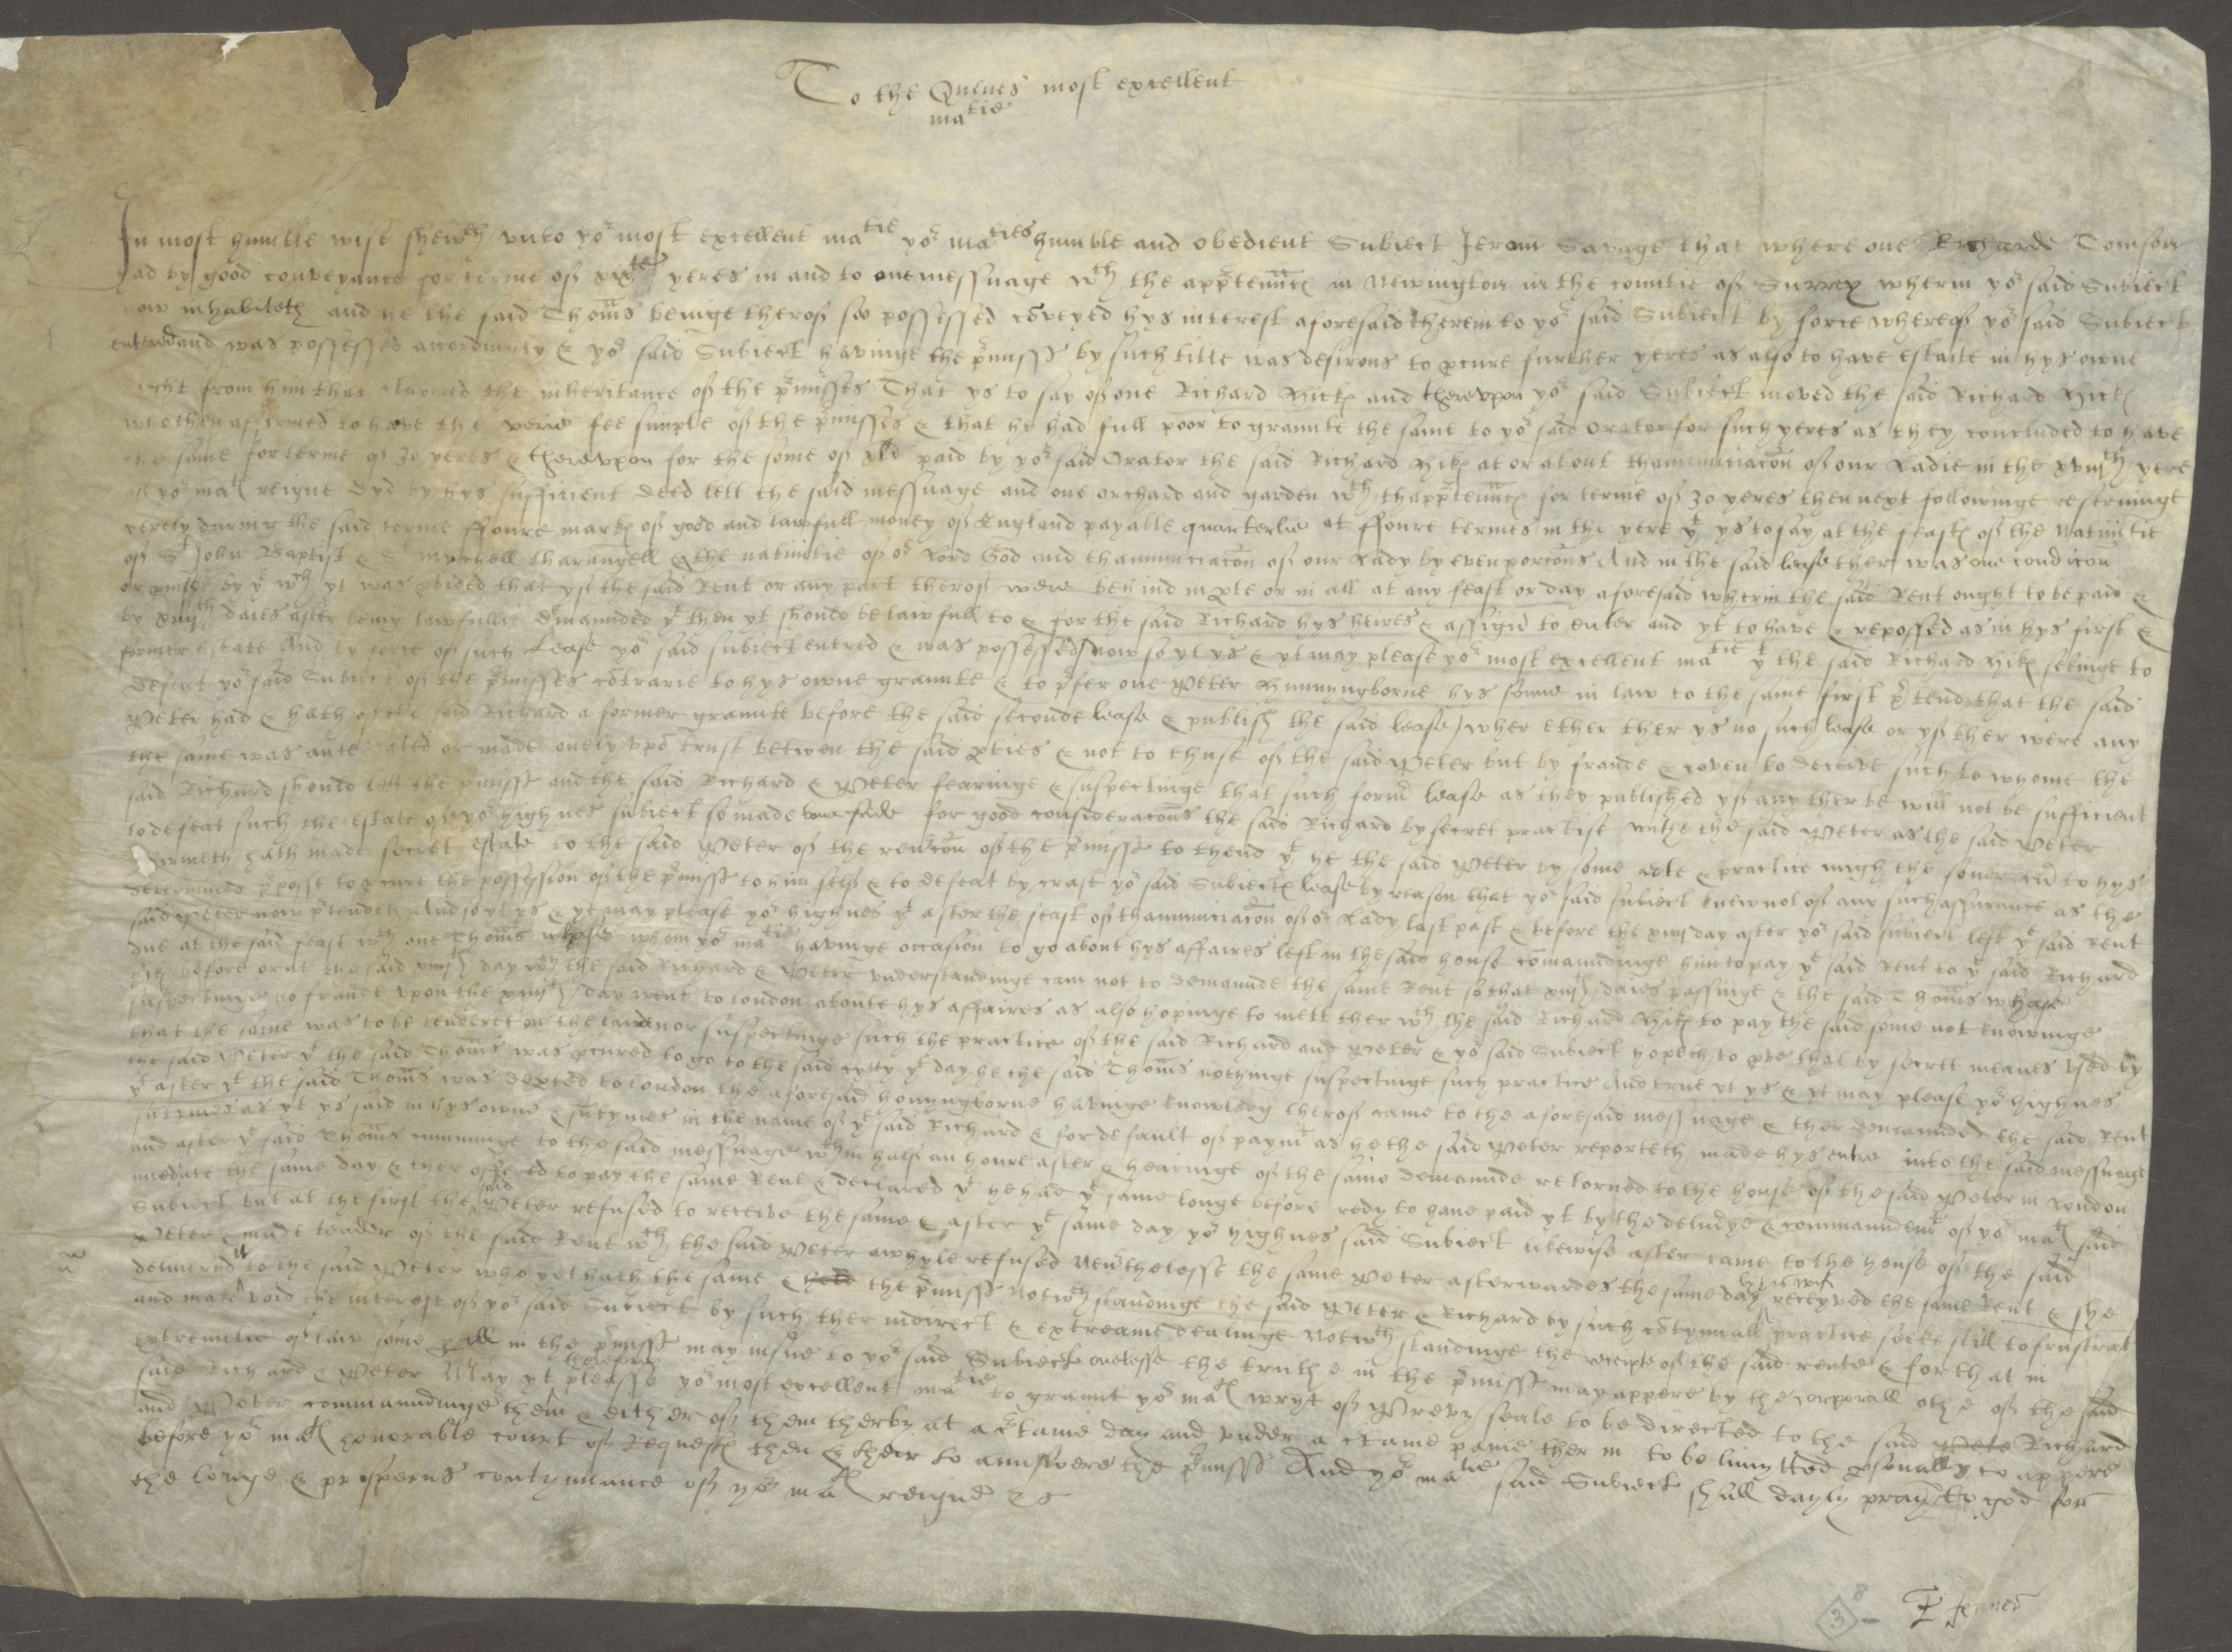 To the Quenes most excellent
matie
In most humble wise sheweth unto yor most excellent matie yor maties humble and obedient Subiect Jerom Savage that where one Richarde Tomson
had by good conveyance for terme of yeres in and to one messuage wth the apprtennc in Newington in the countie of Surrey wherin yor said Subiect
now inhabiteth and he the said Thoms beinge therof so possessed coveyed hys interest aforesaid therein to yor said Subiect by force wherof yor said Subiect
entered and was possessed accordingly & yor said Subiect havinge the pmiss by such title was desirous to pcure further yeres as also to have estaite in hys owne
right from him that claymd the inheritance of the pmisses That ys to say of one Richard Hick and therevpon yor said Subiect moved the said Richard Hick
who then affirmed to have the verie fee simple of the pmisses & that he had full poor to graunte the same to yor said orator for such yeres as they concluded to have
the same for terme of 30 yeres & therevpon for the some of paid by yor said Orator the said Richard Hik at or about thannunciacon of our Ladie in the xviijth yere
of yor mat reigne dyd by hys sufficient deed lett the said messuage and one orchard and garden wth thapprtennc for terme of 30 yeres then next followinge reservinge
yerely during the said terme ffoure mark of good and lawfull money of England payable quarterlie at ffoure termes in the yere yt ys to say at the feast of the Nativitie
of St John Baptist & St mychell tharangell & the nativitie of or Lord God and thannunciacon of our Lady by even porcons And in the said lease ther was one condicon
or pviso by ye wch yt was pvided that yf the said Rent or any part therof were behind in pte or in all at any feast or day aforesaid wherin the said Rent ought to be paid &
by xiiijth daies after being lawfullie demaunded yt then yt should be lawfull to & for the said Richard hys heires & assigns to enter and yt to have & repossed as in hys first &
former estate And by force of such Lease yor said subiect entred & was possessed now so yt ys & yt may please yor most excellent matie yt the said Richard Hik sekinge to
defeat yor said Subiect of the pmisses cotrarie to hys owne graunte & to pfer one Peter Hunnyngborne hys sonne in law to the same first ptend that the said
Peter had & hath of the said Richard a former graunte before the said seconde lease & publish the said lease wher ether ther ys no such lease or yf ther were any
the same was ante dated or made onely vpo trust betwen the said pties & not to thuse of the said Peter but by fraude & coven to deceive such to whome the
said Richard should lett the pmiss and the said Richard & Peter fearinge & suspectinge that such form lease as they published yf any ther be will not be sufficient
to defeat such the estate of yor highnes subiect so made bona fide for good consideracons the said Richard by secret practise withe the said Peter as the said Peter
affirmeth hath made secret estate to the said Peter of the revcon of the pmiss to thend yt he the said Peter by some arte & practice migh the soner to hys
determined ppose to pcure the possession of the pmiss to him self & to defeat by craft yor said Subiect lease by reason that yor said subiect knew not of any such assurance as the
said Peter now ptendeth And so yt ys & yt may please yor highnes yt after the feast of thannunciacon of or Lady last past & before the xiiij day after yor said subiect left ye said Rent
due at the said feast wth one Thoms whose whom yor matie havinge occasion to go about hys affaires left in the said house comaundinge him to pay ye said Rent to ye said Richard
Hik before or at the said xiiijth day wch the said Richard & Peter understandinge cam not to demaunde the same Rent so that xiiijth daies passinge & the said Thoms whose
suspectinge no fraude vpon the xiiijth day went to london aboute hys affaires as also hopinge to mett ther wth the said Richard Hik to pay the said some not knowinge
that the same was to be tenderet on the land nor suspectinge such the practice of the said Richard and Peter & yor said Subiect hopeth to pve that by secret meanes vsed by
the said Peter yt the said Thoms was pcured to go to the said cytty yt day he the said Thoms nothinge suspectinge such practice And true yt ys & yt may please yor highnes
yt after yt the said Thoms was depted to london the aforesaid honyngborne havinge knowledg therof came to the aforesaid messuage & ther demaunded the said Rent
sutymes as yt ys said in hys owne & sutymes in the name of ye said Richard & for default of paymt as he the said Peter reporteth made hys entre into the said messuage
and after ye said Thoms cumminge to the said messuage wthin half an houre after & hearinge of the same demaunde retorned to the house of the said Peter in London
imediate the same day & ther offered to pay the same Rent & declared yt he had ye same longe before redy to have paid yt by the delivrye & commaundemt of yor mat said
Subiect but at the first the said Peter refused to receive the same & after ye same day yor highnes said Subiect likewise after came to the house of the said
Peter & made tender of the said Rent wch the said Peter awhyle refused Nevrthelesse the same Peter afterwardes the same day by his wif receyved the same Rent & she
delivered it to the said Peter who yet hath the same & held the pmiss Notwthstandinge the said Peter & Richard by such cotynuall practice seeke still to frustrat
and make void the interest of yor said Subiect by such ther indirect & extreame dealinge Notwthstandinge the receipte of the said rente & for that in
extremitie of law some pill in the pmiss may insue to yor said Subiect onelesse the truthe in the pmiss may appere by the corporall othe of the said
said Richard & Peter May yt therefore please yor most excellent matie to graunt yor mat wryt of Prevy seale to be directed to the said Pete Richard
and Peter commaundinge them & either of them therby at a ctaine day and vnder a ctaine paine ther in to be lymytted psonally to appere
before yor mat honorable court of Request then & their to aunswere the pmisse And yor matie said Subiect shall dayly pray to god for
the longe & prosperus contynuance of yor mat reigne &c
38